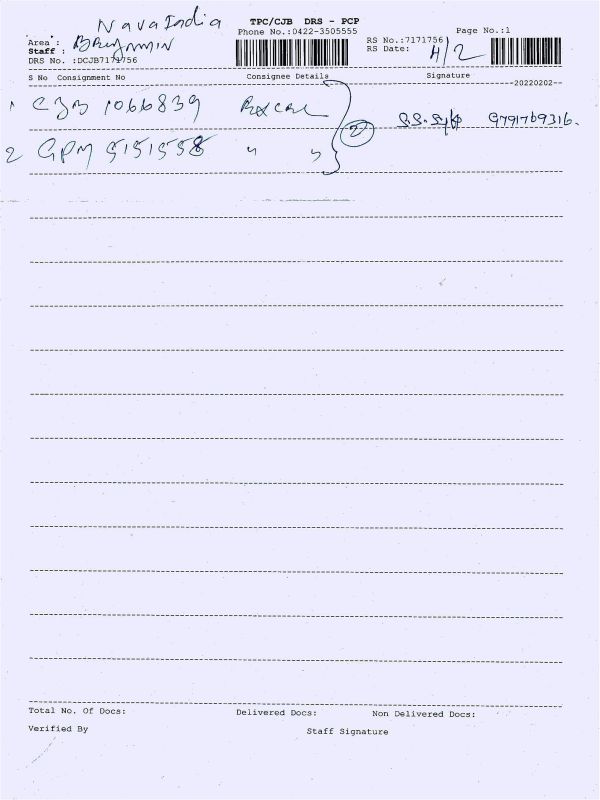 Nava India
TPC/CJB DRS - PCP
Phone No.:0422-3505555
Page No.:1
Area :
RS No.:7171756
Staff :
RS Date: 4/2
DRS No. :DCJB7171756
S No Consignment No Consignee Details Signature
20220202
1 CJB 1066839
2 GPM 5151558 " "
2
9791769316.
Total No. Of Docs: Delivered Docs: Non Delivered Docs:
Verified By
Staff Signature